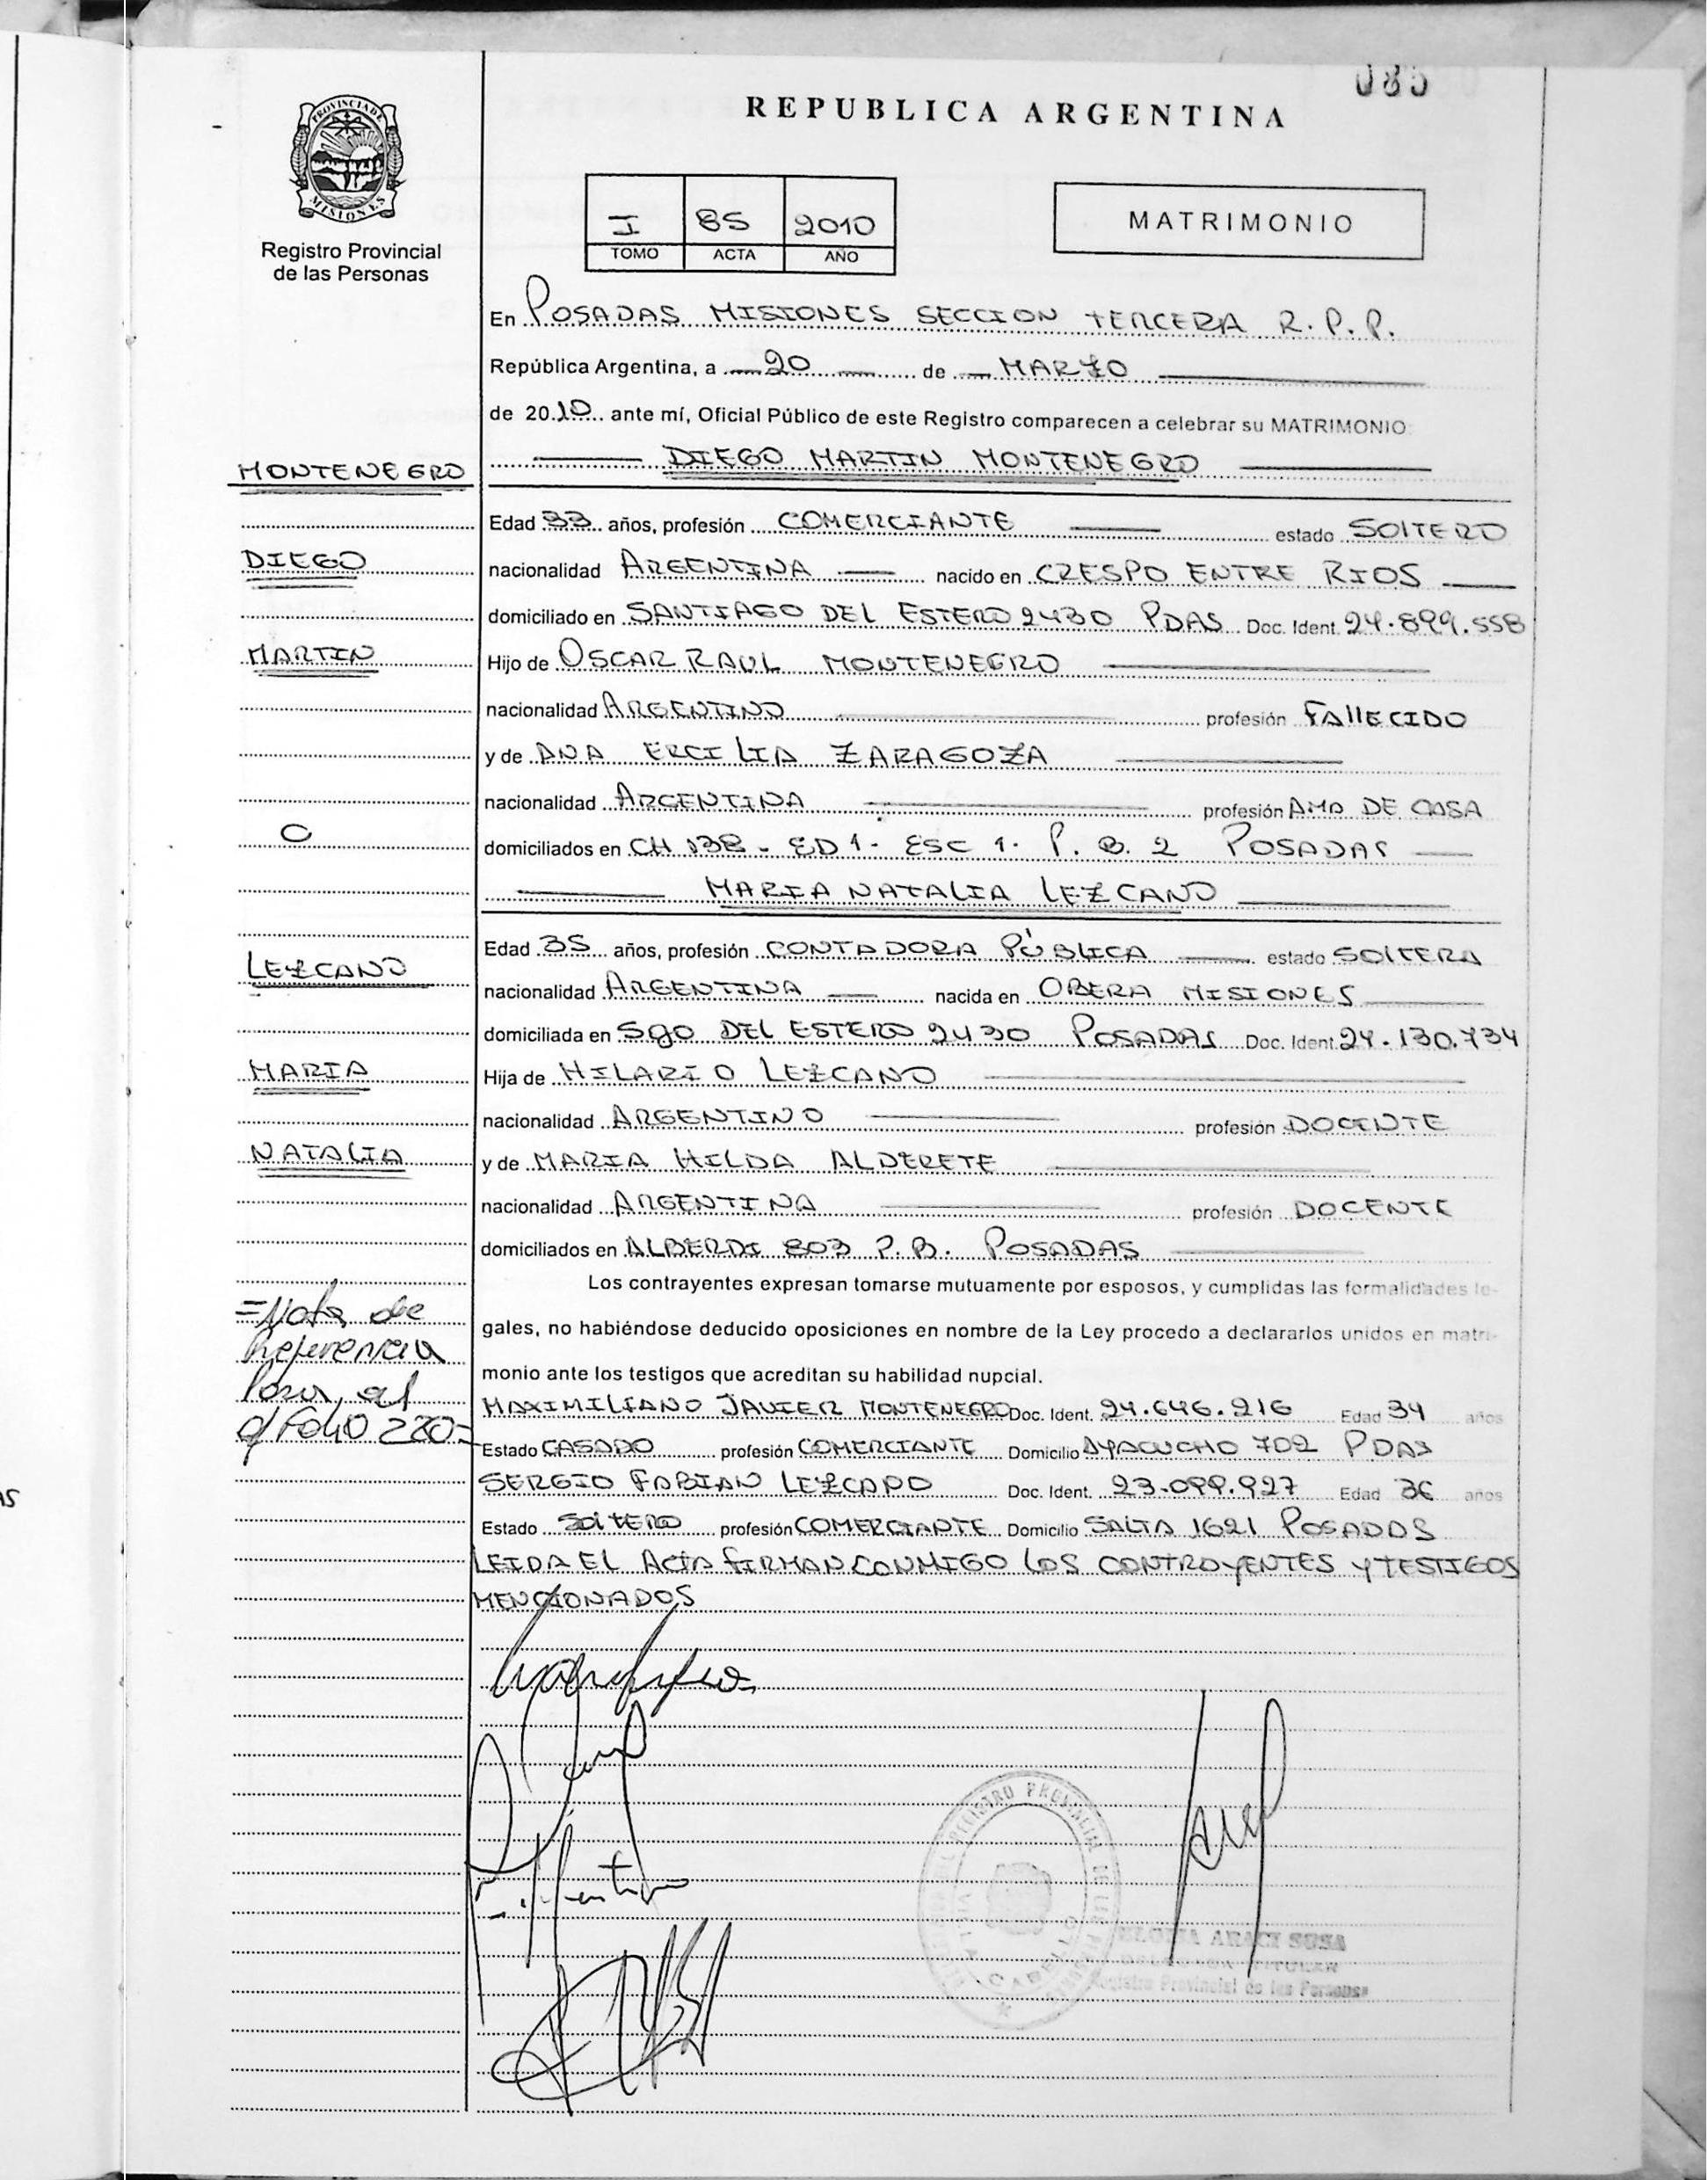 085
REPUBLICA ARGENTINA
PROVINCIA DE
MISIONES
Registro Provincial
de las Personas
I 85 2010
TOMO ACTA AÑO
MATRIMONIO
En POSADAS MISIONES SECCION TERCERA R.P.P.
República Argentina, a 20 de MARZO
de 2010 ante mí, Oficial Público de este Registro comparecen a celebrar su MATRIMONIO:
DIEGO MARTIN MONTENEGRO
MONTENEGRO
Edad 33 años, profesión COMERCIANTE estado SOLTERO
DIEGO
nacionalidad ARGENTINA nacido en CRESPO ENTRE RIOS
domiciliado en SANTIAGO DEL ESTERO 2430 PDAS Doc. Ident. 24.899.558
MARTIN
Hijo de OSCAR RAUL MONTENEGRO
nacionalidad ARGENTINO profesión FALLECIDO
y de ANA ERCILIA ZARAGOZA
nacionalidad ARGENTINA profesión AMA DE CASA
C
domiciliados en CH 138 - ED 1 - ESC 1. P.B. 2 POSADAS
MARIA NATALIA LEZCANO
Edad 35 años, profesión CONTADORA PÚBLICA estado SOLTERA
LEZCANO
nacionalidad ARGENTINA nacida en OBERA MISIONES
domiciliada en SGO DEL ESTERO 2430 POSADAS Doc. Ident. 24.130.734
MARIA
Hija de HILARIO LEZCANO
nacionalidad ARGENTINO profesión DOCENTE
NATALIA
y de MARIA HILDA ALDERETE
nacionalidad ARGENTINA profesión DOCENTE
domiciliados en ALBERDI 803 P.B. POSADAS
Los contrayentes expresan tomarse mutuamente por esposos, y cumplidas las formalidades le-
gales, no habiéndose deducido oposiciones en nombre de la Ley procedo a declararlos unidos en matri-
monio ante los testigos que acreditan su habilidad nupcial.
=Nota de
Referencia
Pasa al
d/ Folio 220=
MAXIMILIANO JAVIER MONTENEGRO Doc. Ident. 24.646.216 Edad 34 años
Estado CASADO profesión COMERCIANTE Domicilio AYACUCHO 702 PDAS
SERGIO FABIAN LEZCANO Doc. Ident. 23.099.927 Edad 36 años
Estado SOLTERO profesión COMERCIANTE Domicilio SALTA 1621 POSADAS
LEIDA EL ACTA FIRMAN CONMIGO LOS CONTRAYENTES Y TESTIGOS
MENCIONADOS
REGISTRO PROVINCIAL DE LAS
ARACY SOSA
TITULAR
Registro Provincial de las Personas